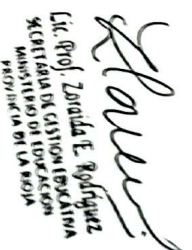 Lic. Prof. Zoraida E. Rodríguez
SECRETARIA DE GESTION EDUCATIVA
MINISTERIO DE EDUCACION
PROVINCIA DE LA RIOJA